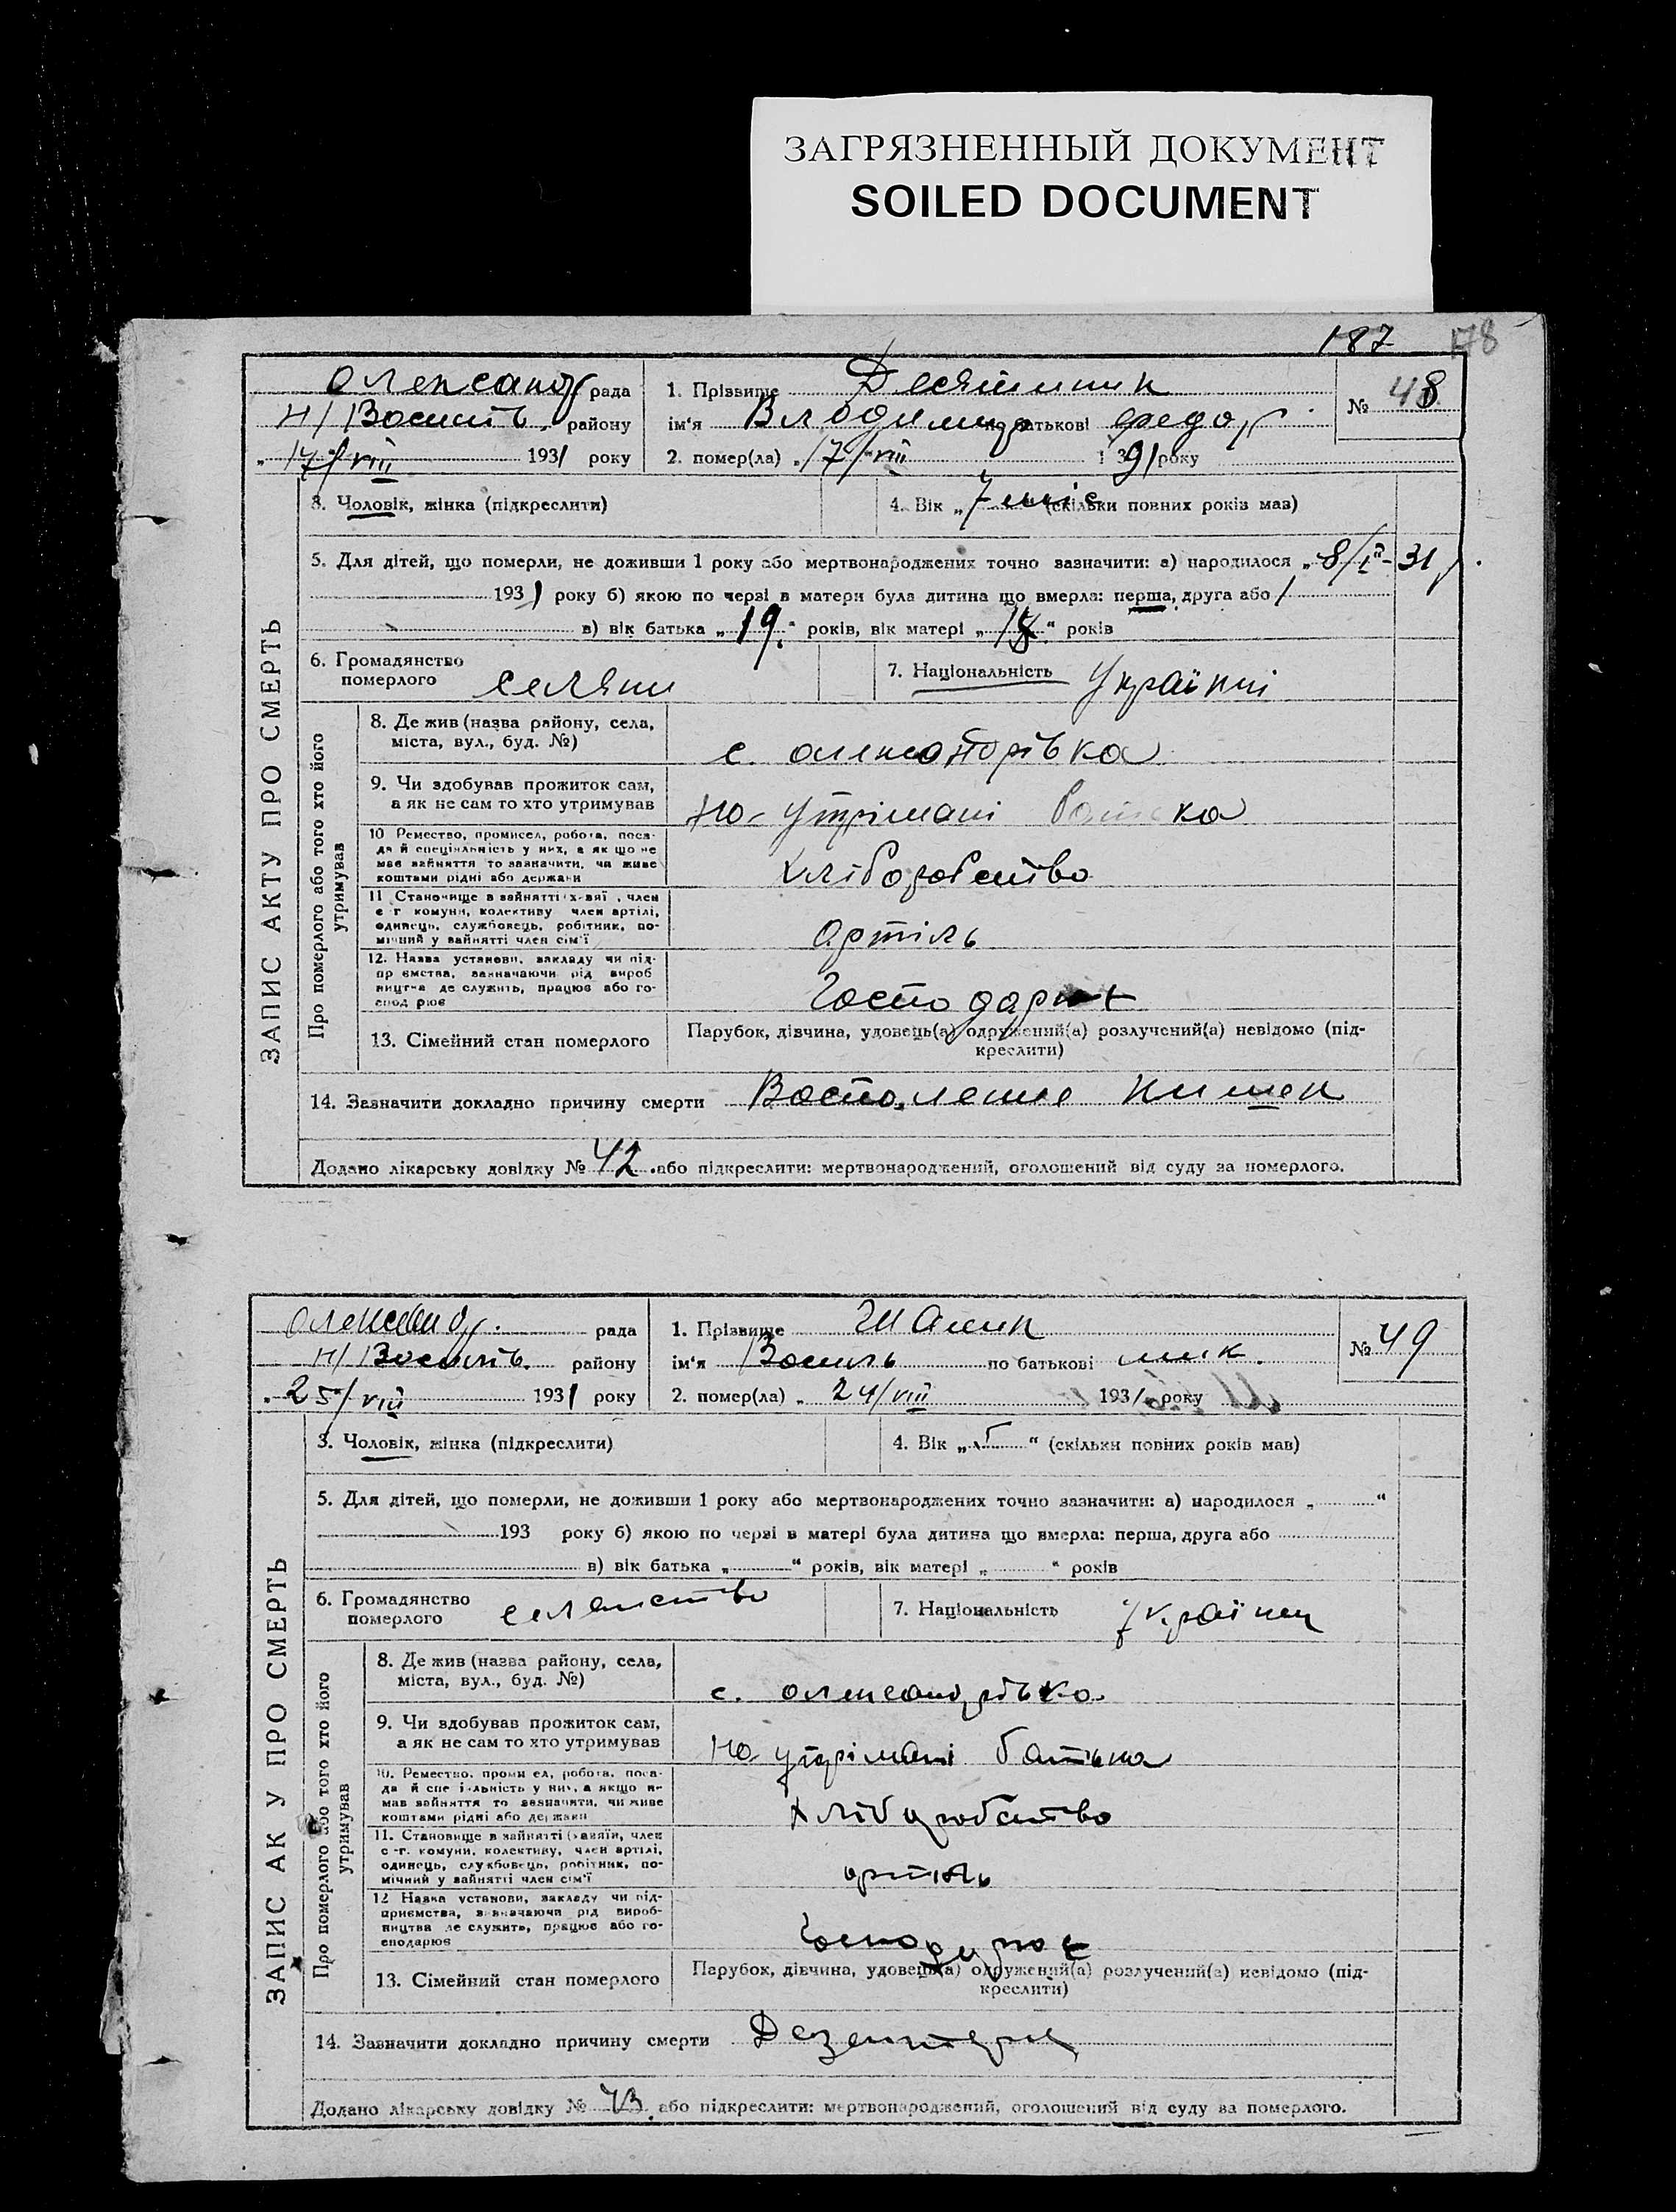 ЗАГРЯЗНЕННЫЙ ДОКУМЕНТ
SOILED DOCUMENT
187 178
ЗАПИС АКТУ ПРО СМЕРТЬ
Олександр рада
Н/Васил. району
„ 17/VIII 1931 року
1. Прізвище Десятник
ім'я Володимир по батькові Федор.
2. помер(ла) „ 17/VIII 1931 року
№ 48
3. Чоловік, жінка (підкреслити)
4. Вік „ 7 міс (скільки повних років мав)
5. Для дітей, що померли, не доживши 1 року або мертвонароджених точно зазначити: а) народилося „ 8/I - 31 р.
1931 року б) якою по черзі в матери була дитина що вмерла: перша, друга або
в) вік батька „ 19 " років, вік матері „ 18 " років
6. Громадянство померлого селяни
7. Національність Українці
Про померлого або того хто його утримував
8. Де жив (назва району, села,
міста, вул., буд. №)
с. Олександрівка
9. Чи здобував прожиток сам,
а як не сам то хто утримував
На утрімані батька
10 Ремество, промисел, робота, поса-
да й спеціяльність у них, а як що не
має зайняття то зазначити, чи живе
коштами рідні або держави
Хліборобство
11 Становище в зайнятті (х-вяї , член
с г комуни, колективу член артілі,
одинець, службовець, робітник, по-
мічний у зайнятті член сім'ї
артіль
12. Назва установи, закладу чи під-
пр ємства, зазначаючи рід вироб
ництва де служить, працює або го-
спод рює
Господарює
13. Сімейний стан померлого
Парубок, дівчина, удовець(а) одружений(а) розлучений(а) невідомо (під-
креслити)
14. Зазначити докладно причину смерти Воспаление кишек
Додано лікарську довідку № 42 або підкреслити: мертвонароджений, оголошений від суду за померлого.
ЗАПИС АК У ПРО СМЕРТЬ
Олександр. рада
Н/Васил. району
„ 25/VIII 1931 року
1. Прізвище
ім'я Василь по батькові Мик.
2. помер(ла) „ 24/VIII 1931 року
№ 49
3. Чоловік, жінка (підкреслити)
4. Вік „ " (скільки повних років мав)
5. Для дітей, що померли, не доживши 1 року або мертвонароджених точно зазначити: а) народилося „ "
193 року б) якою по черзі в матері була дитина що вмерла: перша, друга або
в) вік батька „ " років, вік матері „ " років
6. Громадянство померлого селянство
7. Національність Українец
Про померлого або того хто його утримував
8. Де жив (назва району, села,
міста, вул., буд. №)
с. Олександрівка
9. Чи здобував прожиток сам,
а як не сам то хто утримував
На утрімані батька
10. Ремество, проми ел, робота, поса-
да й спе і льність у них, а якщо н-
мав зайняття то зазначити, чи живе
коштами рідні або держави
Хліборобство
11. Становище в зайнятті (хазяїн, член
с -г. комуни, колективу, член артілі,
одинець, службовець, робітник, по-
мічний у зайнятті член сім'ї
артіль
12 Назва установи, закладу чи під-
приємства, зазначаючи рід вироб-
ництва де служить, працює або го-
сподарює
Господарює
13. Сімейний стан померлого
Парубок, дівчина, удовець(а) одружений(а) розлучений(а) невідомо (під-
креслити)
14. Зазначити докладно причину смерти Дезентерия
Додано лікарську довідку № 43 або підкреслити: мертвонароджений, оголошений від суду за померлого.